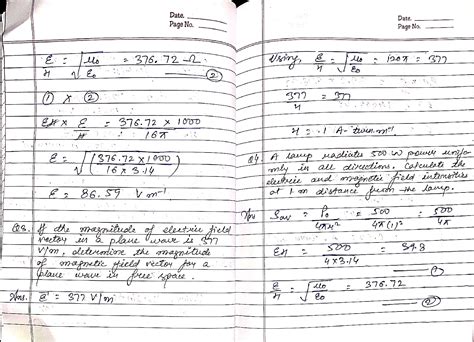 Date
Page No.
E/H = √μo/εo = 376.72 Ω
— ②
① × ②
EH × E/H = 376.72 × 1000 / 16π
E = √(376.72 × 1000 / 16 × 3.14)
E = 86.59 V m⁻¹
Q3. If the magnitude of electric field
vector in a plane wave is 377
V/m, determine the magnitude
of magnetic field vector for a
plane wave in free space.
Ans. E = 377 V/m
Date
Page No.
Using, E/H = √μo/εo = 120π = 377
377/H = 377
H = 1 A-turn m⁻¹
Q4. A lamp radiates 500 W power unifor
mly in all directions. Calculate the
electric and magnetic field intensities
at 1 m distance from the lamp.
Sav = Po/4πr² = 500/4π(1)² = 500/4π
EH = 500 / 4 × 3.14 = 39.8
— ①
E/H = √μo/εo = 376.72
— ②